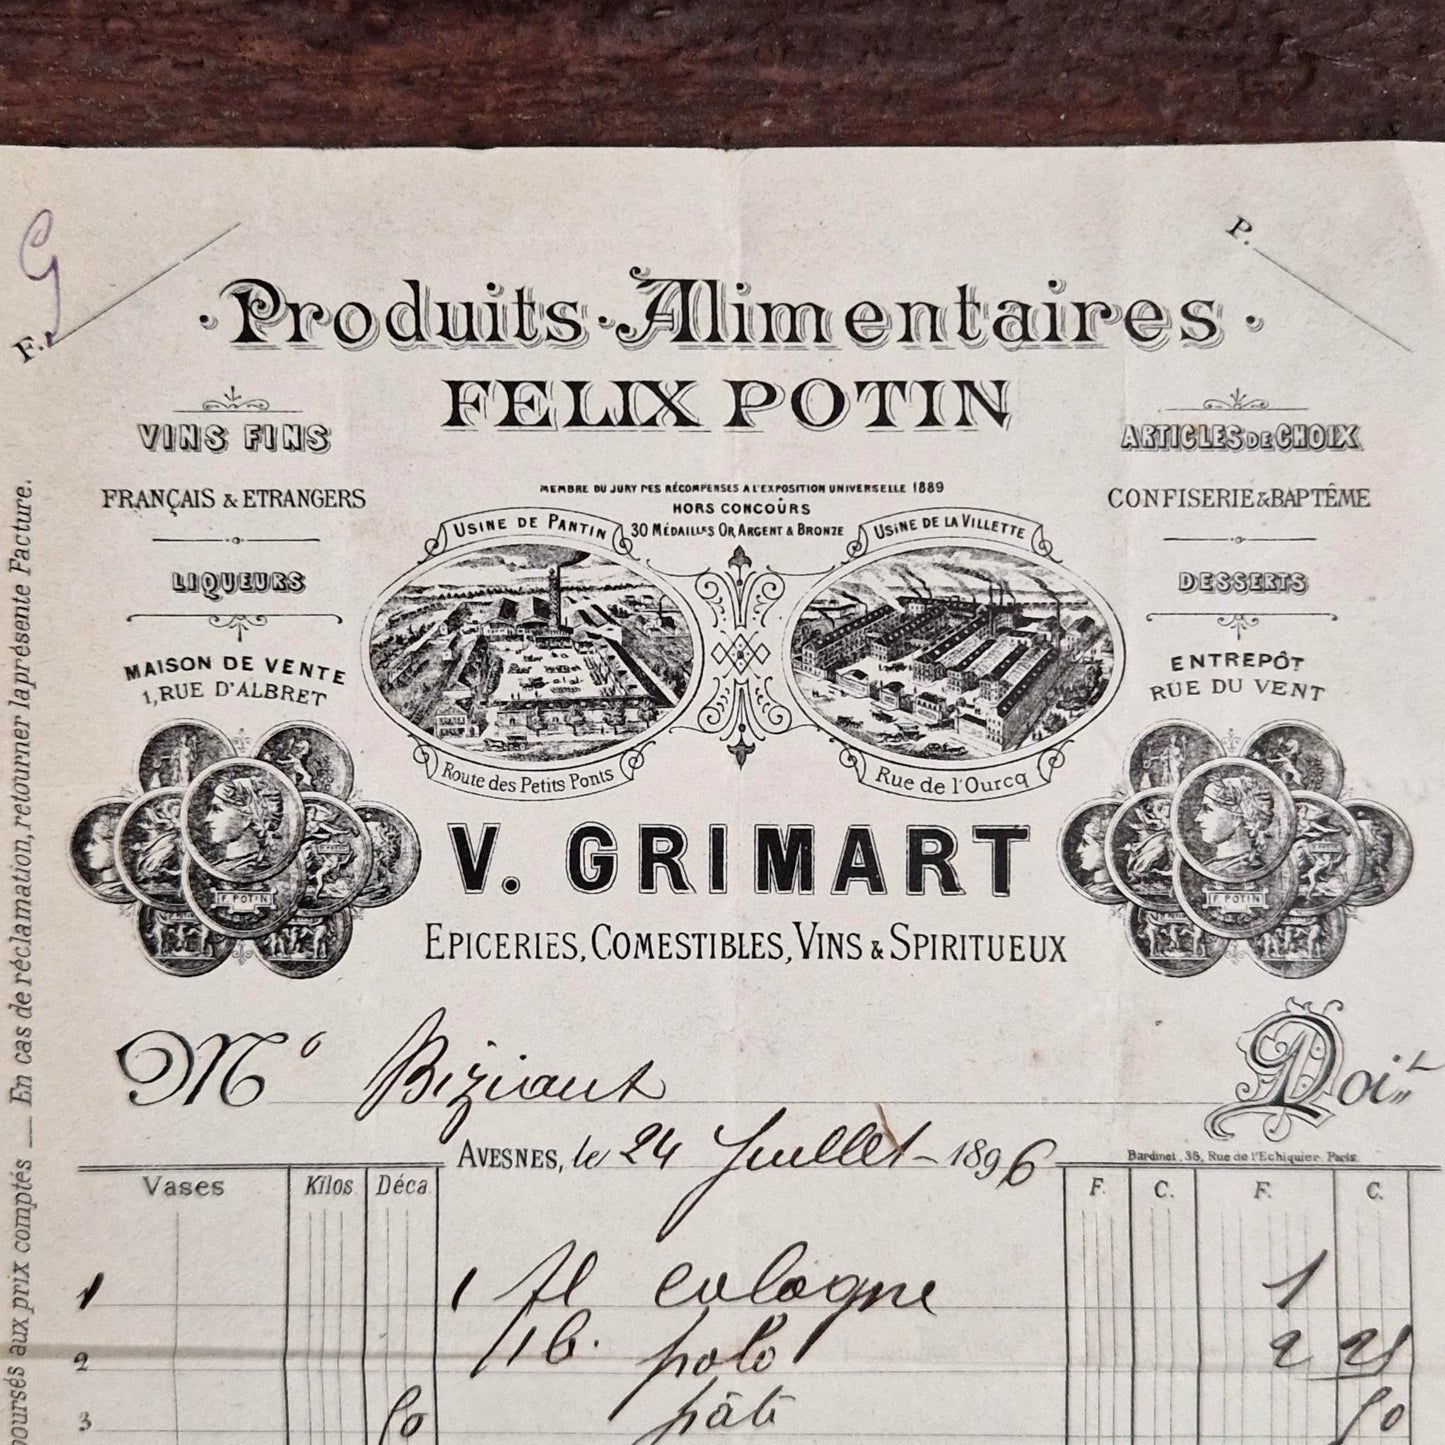 G
F.
P.
Produits Alimentaires
FELIX POTIN
VINS FINS
FRANÇAIS & ETRANGERS
LIQUEURS
MAISON DE VENTE
1, RUE D'ALBRET
ARTICLES DE CHOIX
CONFISERIE & BAPTÊME
DESSERTS
ENTREPÔT
RUE DU VENT
MEMBRE DU JURY DES RÉCOMPENSES A L'EXPOSITION UNIVERSELLE 1889
HORS CONCOURS
30 MÉDAILLES OR, ARGENT & BRONZE
USINE DE PANTIN
USINE DE LA VILLETTE
Route des Petits Ponts
Rue de l'Ourcq
F. POTIN
F. POTIN
V. GRIMART
EPICERIES, COMESTIBLES, VINS & SPIRITUEUX
Doit
AVESNES, le 24 Juillet 1896
Bardinet, 36, Rue de l'Echiquier. Paris.
Vases Kilos Déca F. C. F. C.
1 1 fl cologne 1
2 polo 2 25
3 50 pâte 50
boursés aux prix comptés — En cas de réclamation, retourner la présente Facture.